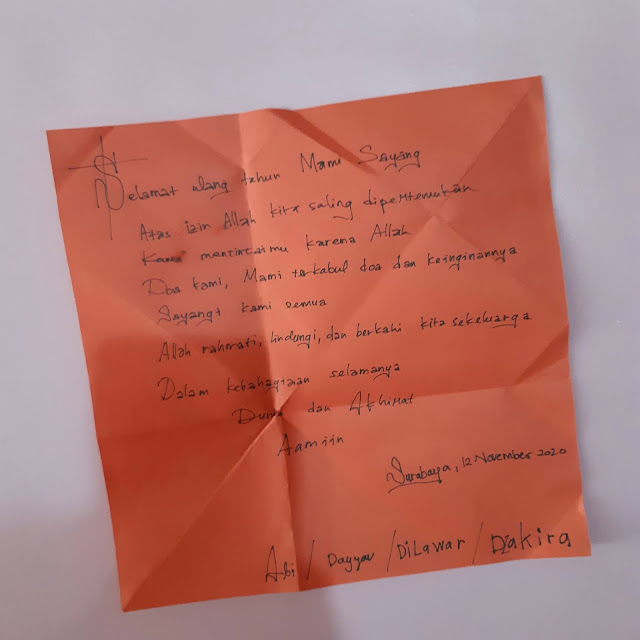 Selamat ulang tahun Mami Sayang
Atas izin Allah kita saling dipertemukan
Kami mencintaimu karena Allah
Doa kami, Mami terkabul doa dan keinginannya
Sayangi kami semua
Allah rahmati, lindungi, dan berkahi kita sekeluarga
Dalam kebahagiaan selamanya
Dunia dan Akhirat
Aamiin
Surabaya, 12 November 2020
Abi / Dayyan / DiLawar / Dzakira